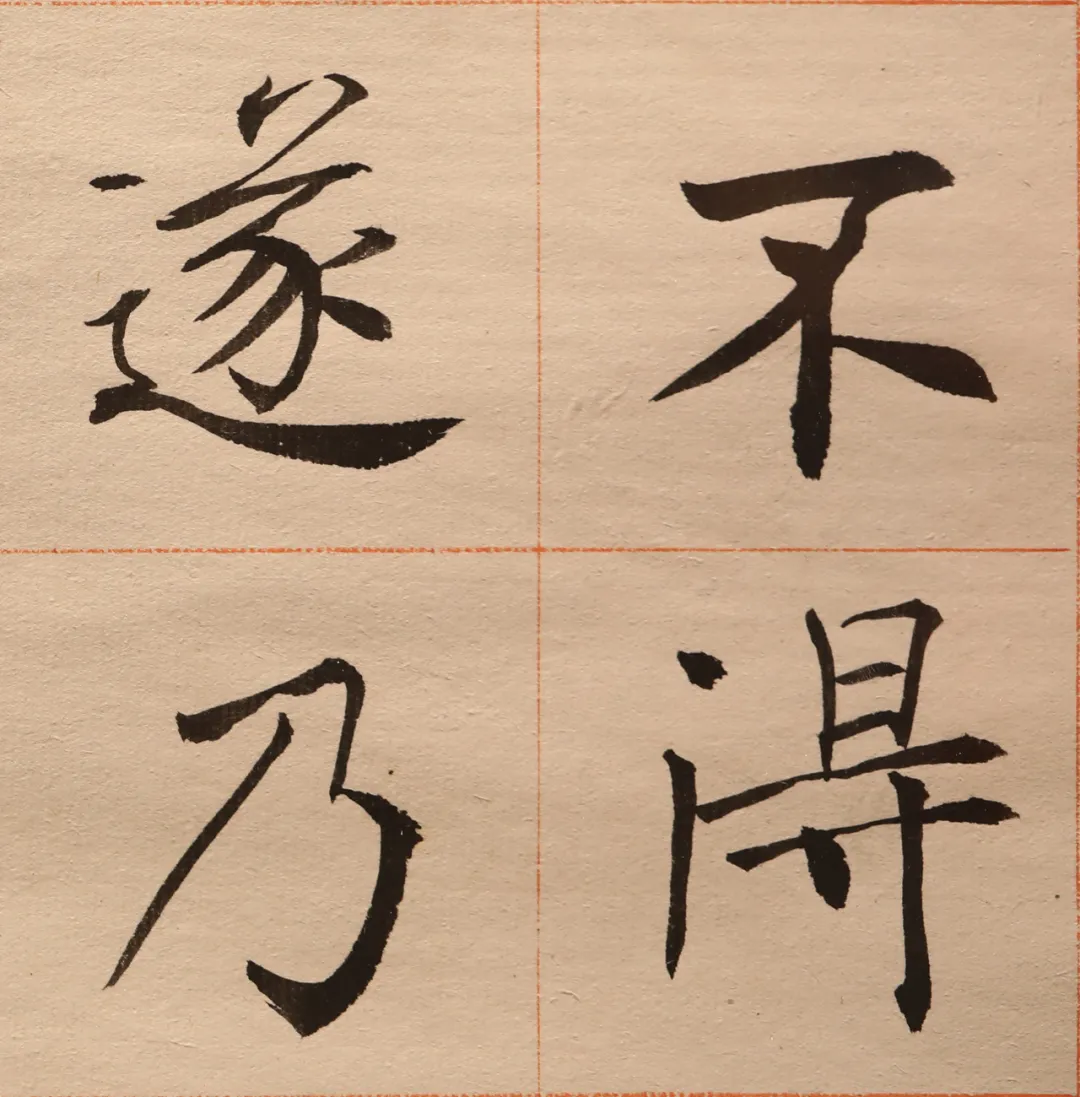 不得
遂乃